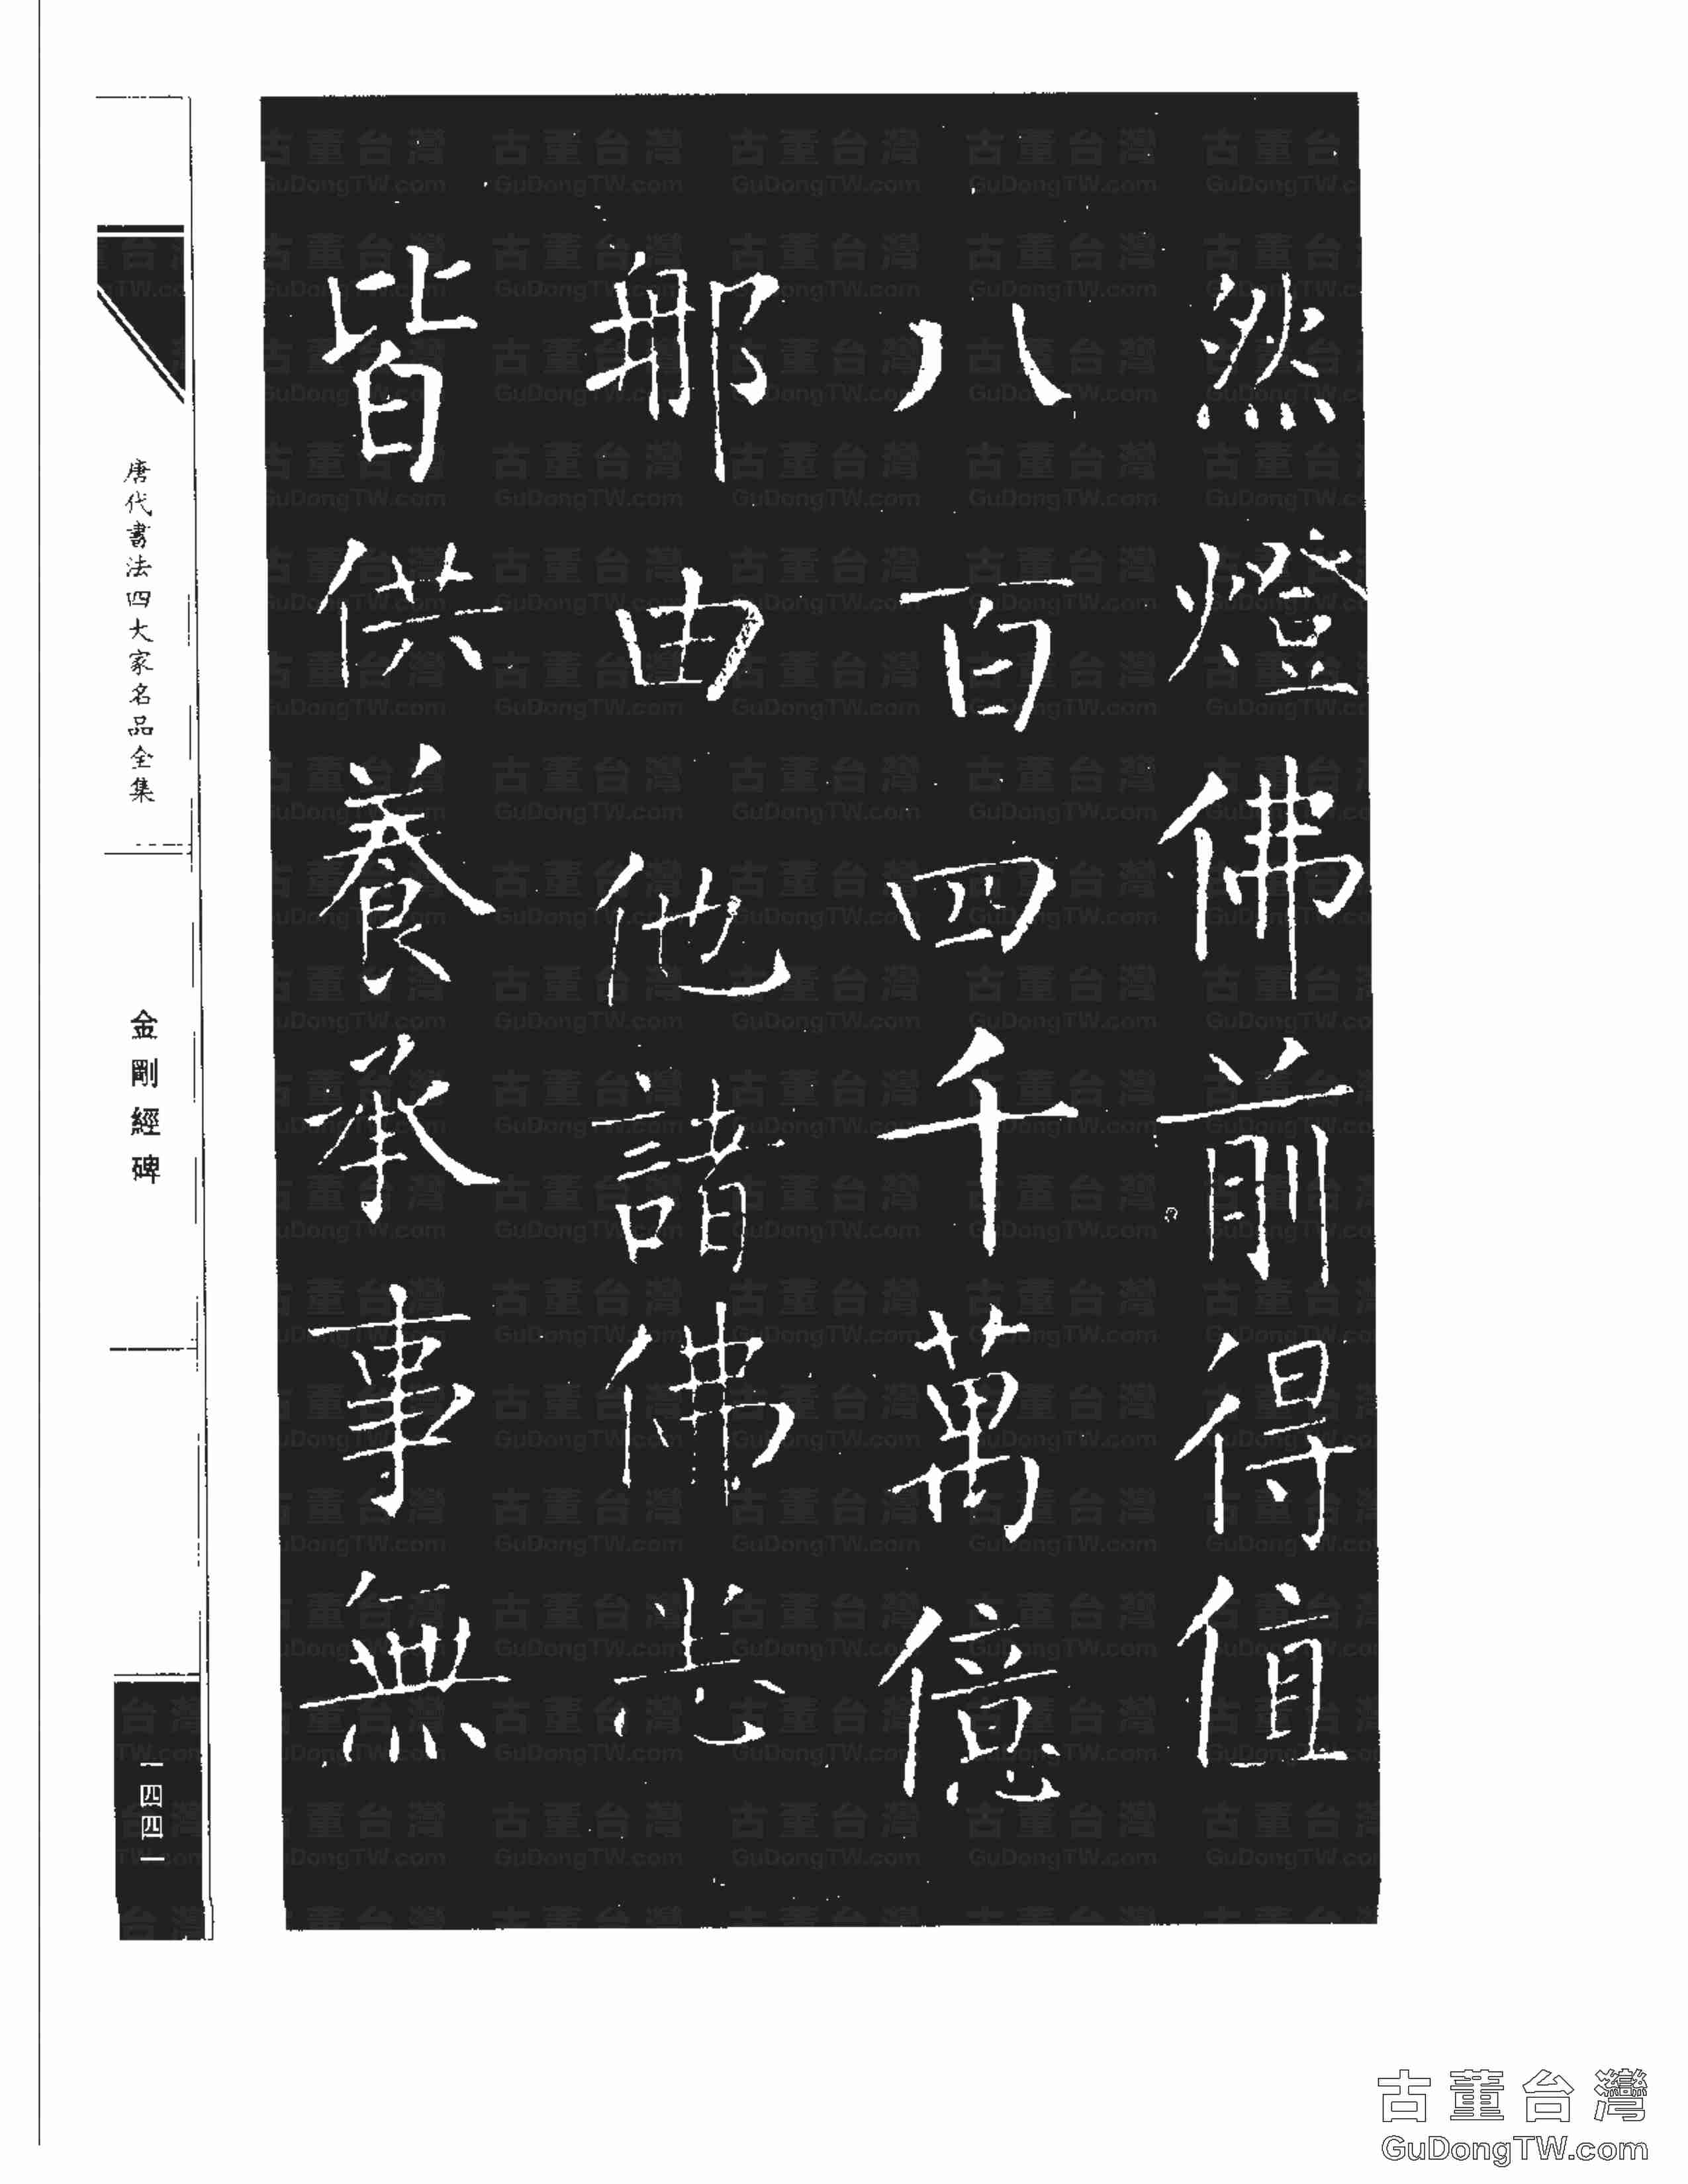 然燈佛前得值
八百四千萬億
那由他諸佛悉
皆供養承事無
唐代書法四大家名品全集
金剛經碑
一四四一
古董台灣
GuDongTW.com